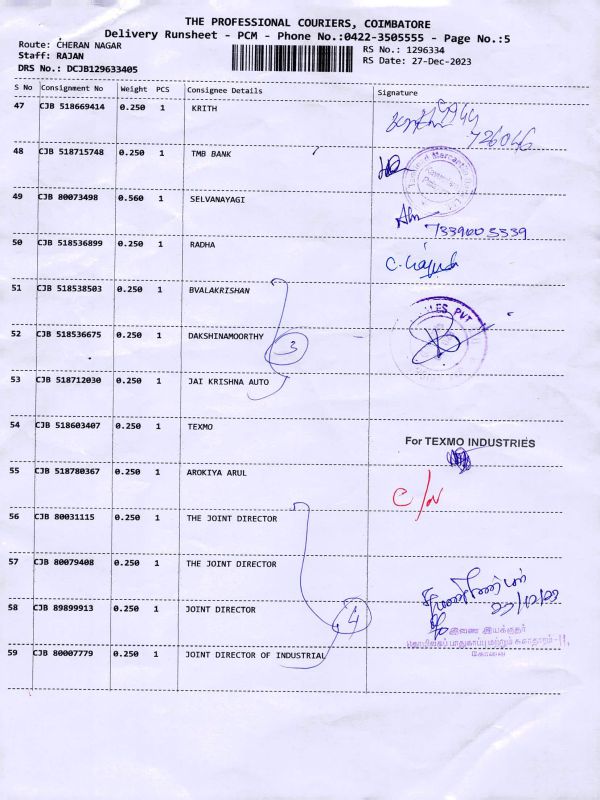 THE PROFESSIONAL COURIERS, COIMBATORE
Delivery Runsheet - PCM - Phone No.:0422-3505555 - Page No.:5
Route: CHERAN NAGAR
RS No.: 1296334
Staff: RAJAN
RS Date: 27-Dec-2023
DRS No.: DCJB129633405
S No Consignment No Weight PCS Consignee Details Signature
47 CJB 518669414 0.250 1 KRITH
726046
48 CJB 518715748 0.250 1 TMB BANK
49 CJB 80073498 0.560 1 SELVANAYAGI
7339603339
50 CJB 518536899 0.250 1 RADHA
51 CJB 518538503 0.250 1 BVALAKRISHAN
LES PVT
52 CJB 518536675 0.250 1 DAKSHINAMOORTHY
3
53 CJB 518712030 0.250 1 JAI KRISHNA AUTO
54 CJB 518603407 0.250 1 TEXMO
For TEXMO INDUSTRIES
55 CJB 518780367 0.250 1 AROKIYA ARUL
56 CJB 80031115 0.250 1 THE JOINT DIRECTOR
57 CJB 80079408 0.250 1 THE JOINT DIRECTOR
58 CJB 89899913 0.250 1 JOINT DIRECTOR
4
இணை இயக்குநர்
59 CJB 80007779 0.250 1 JOINT DIRECTOR OF INDUSTRIAL
கோவை